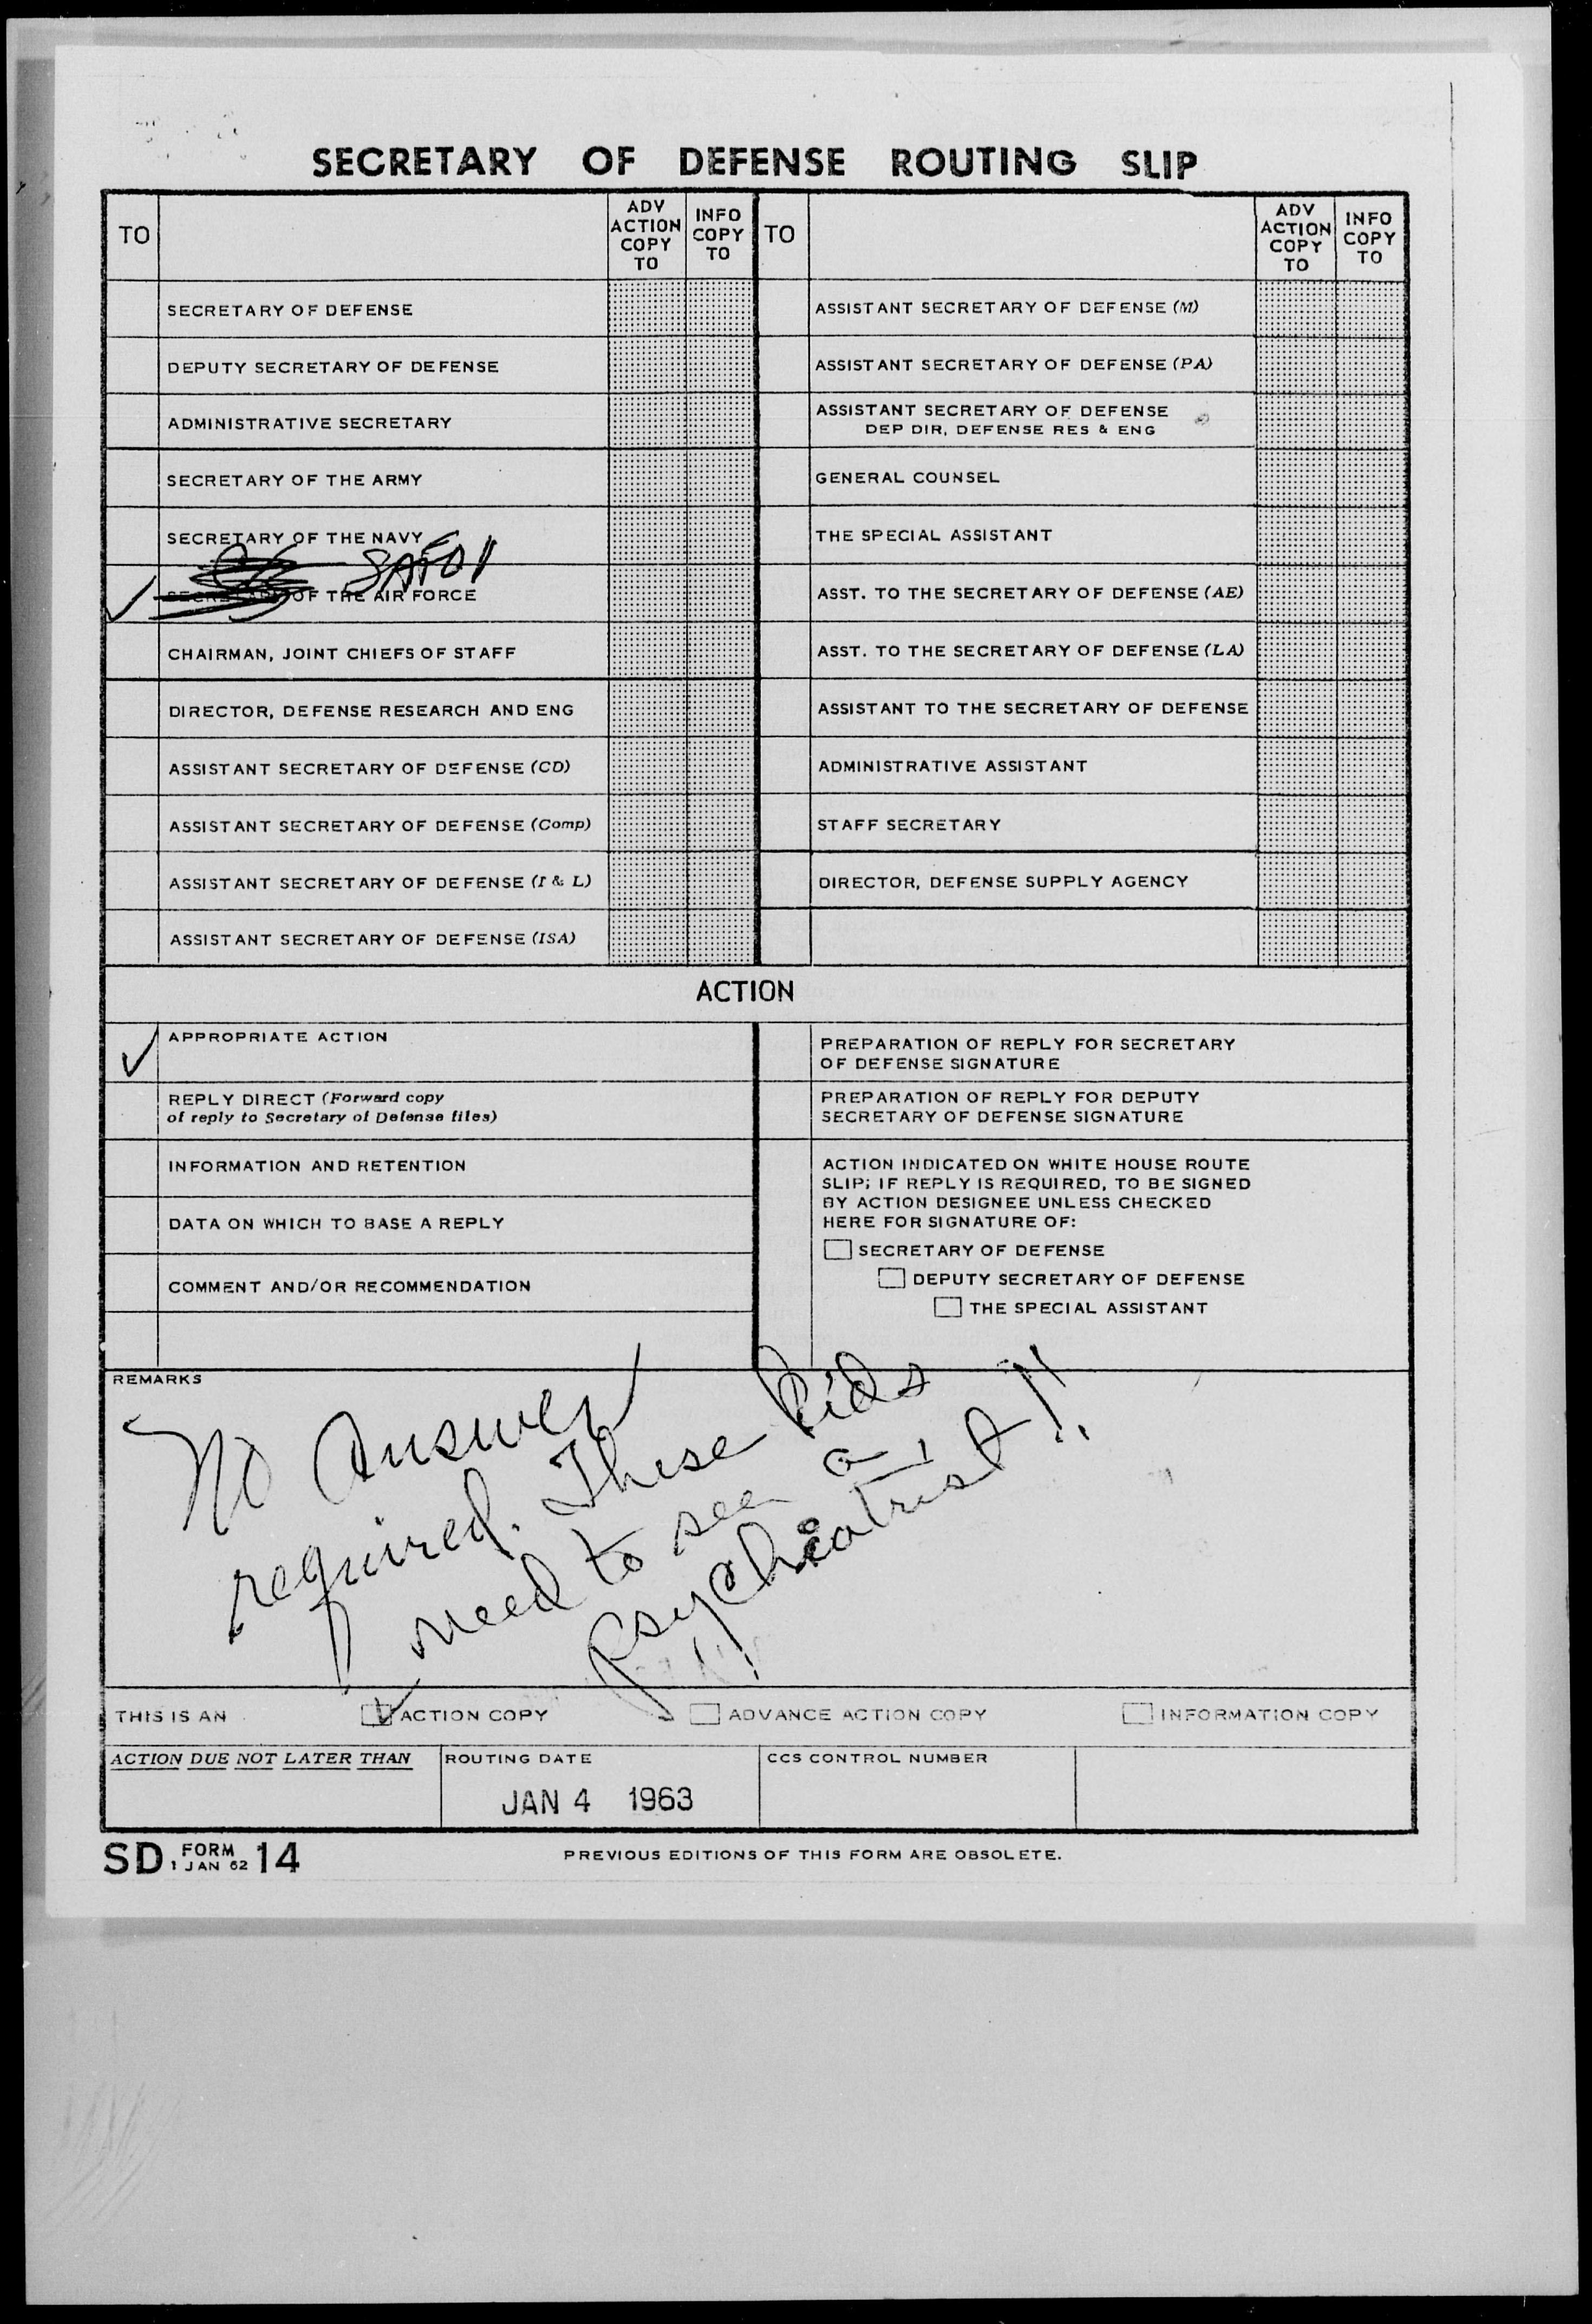 SECRETARY OF DEFENSE ROUTING SLIP
TO
ADV ACTION COPY TO
INFO COPY TO
TO
ADV ACTION COPY TO
INFO COPY TO
SECRETARY OF DEFENSE
DEPUTY SECRETARY OF DEFENSE
ADMINISTRATIVE SECRETARY
SECRETARY OF THE ARMY
SECRETARY OF THE NAVY
SECRETARY OF THE AIR FORCE
CHAIRMAN, JOINT CHIEFS OF STAFF
DIRECTOR, DEFENSE RESEARCH AND ENG
ASSISTANT SECRETARY OF DEFENSE (CD)
ASSISTANT SECRETARY OF DEFENSE (Comp)
ASSISTANT SECRETARY OF DEFENSE (I & L)
ASSISTANT SECRETARY OF DEFENSE (ISA)
ASSISTANT SECRETARY OF DEFENSE (M)
ASSISTANT SECRETARY OF DEFENSE (PA)
ASSISTANT SECRETARY OF DEFENSE
DEP DIR, DEFENSE RES & ENG
GENERAL COUNSEL
THE SPECIAL ASSISTANT
ASST. TO THE SECRETARY OF DEFENSE (AE)
ASST. TO THE SECRETARY OF DEFENSE (LA)
ASSISTANT TO THE SECRETARY OF DEFENSE
ADMINISTRATIVE ASSISTANT
STAFF SECRETARY
DIRECTOR, DEFENSE SUPPLY AGENCY
ACTION
APPROPRIATE ACTION
REPLY DIRECT (Forward copy
of reply to Secretary of Defense files)
INFORMATION AND RETENTION
DATA ON WHICH TO BASE A REPLY
COMMENT AND/OR RECOMMENDATION
PREPARATION OF REPLY FOR SECRETARY
OF DEFENSE SIGNATURE
PREPARATION OF REPLY FOR DEPUTY
SECRETARY OF DEFENSE SIGNATURE
ACTION INDICATED ON WHITE HOUSE ROUTE
SLIP; IF REPLY IS REQUIRED, TO BE SIGNED
BY ACTION DESIGNEE UNLESS CHECKED
HERE FOR SIGNATURE OF:
SECRETARY OF DEFENSE
DEPUTY SECRETARY OF DEFENSE
THE SPECIAL ASSISTANT
REMARKS
No Answer
required. These kids
need to see a
psychiatrist!!
THIS IS AN ACTION COPY ADVANCE ACTION COPY INFORMATION COPY
ACTION DUE NOT LATER THAN
ROUTING DATE
JAN 4 1963
CCS CONTROL NUMBER
SD FORM 1 JAN 62 14
PREVIOUS EDITIONS OF THIS FORM ARE OBSOLETE.